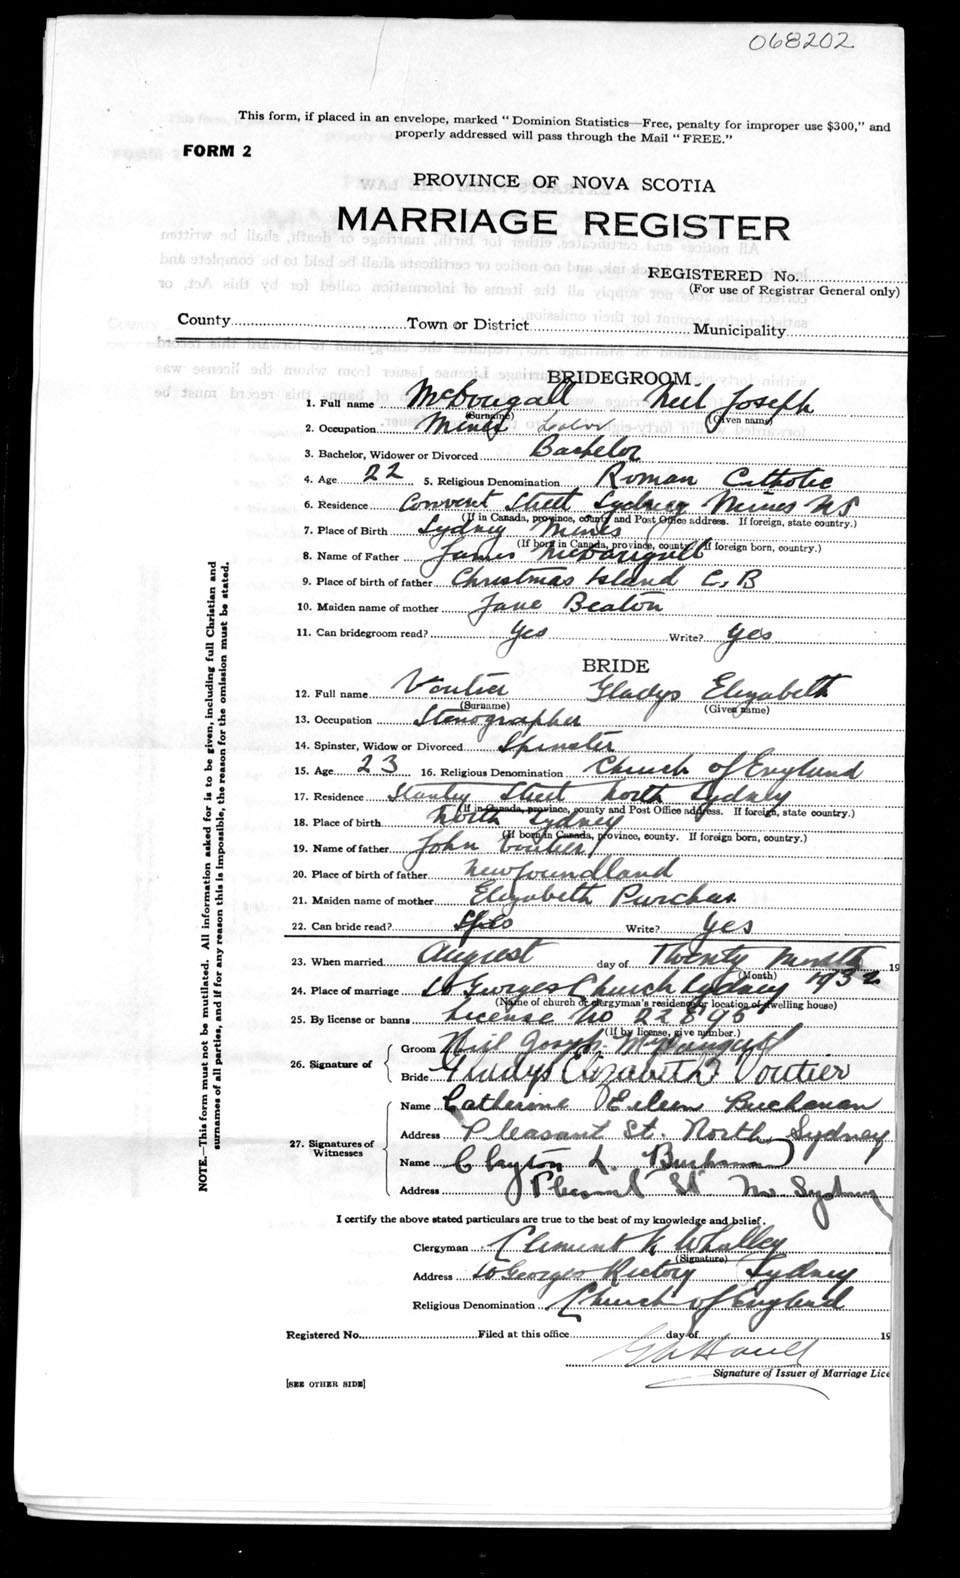 068202
This form, if placed in an envelope, marked "Dominion Statistics—Free, penalty for improper use $300," and
properly addressed will pass through the Mail "FREE."
FORM 2
PROVINCE OF NOVA SCOTIA
MARRIAGE REGISTER
REGISTERED No.
(For use of Registrar General only)
County Town or District Municipality
BRIDEGROOM
1. Full name McDougall Neil Joseph
(Surname) (Given name)
2. Occupation Mines Labor
3. Bachelor, Widower or Divorced Bachelor
4. Age 22 5. Religious Denomination Roman Catholic
6. Residence Convent Street Sydney Mines NS
(If in Canada, province, county and Post Office address. If foreign, state country.)
7. Place of Birth Sydney Mines
(If born in Canada, province, county. If foreign born, country.)
8. Name of Father James McDougall
9. Place of birth of father Christmas Island C, B
10. Maiden name of mother Jane Beaton
11. Can bridegroom read? Yes Write? Yes
BRIDE
12. Full name Voutier Gladys Elizabeth
(Surname) (Given name)
13. Occupation Stenographer
14. Spinster, Widow or Divorced Spinster
15. Age 23 16. Religious Denomination Church of England
17. Residence Stanley Street North Sydney
(If in Canada, province, county and Post Office address. If foreign, state country.)
18. Place of birth North Sydney
(If born in Canada, province, county. If foreign born, country.)
19. Name of father John Voutier
20. Place of birth of father Newfoundland
21. Maiden name of mother Elizabeth Purchas
22. Can bride read? Write? Yes
23. When married August day of Twenty 1932 19
(Month)
24. Place of marriage St Georges Church Sydney
(Name of church or clergyman's residence or location of dwelling house)
25. By license or banns License No 22895
(If by license, give number.)
26. Signature of
Groom Neil Joseph McDougall
Bride Gladys Elizabeth Voutier
27. Signatures of Witnesses
Name Catherine Eileen Buchanan
Address Pleasant St. North Sydney
Name Clayton L. Buchanan
Address Pleasant St No Sydney
I certify the above stated particulars are true to the best of my knowledge and belief.
Clergyman Clement K Whalley
(Signature)
Address St Georges Rectory Sydney
Religious Denomination Church of England
Registered No. Filed at this office day of 19
Signature of Issuer of Marriage Lice
[SEE OTHER SIDE]
NOTE.—This form must not be mutilated. All information asked for is to be given, including full Christian and
surnames of all parties, and if for any reason this is impossible, the reason for the omission must be stated.